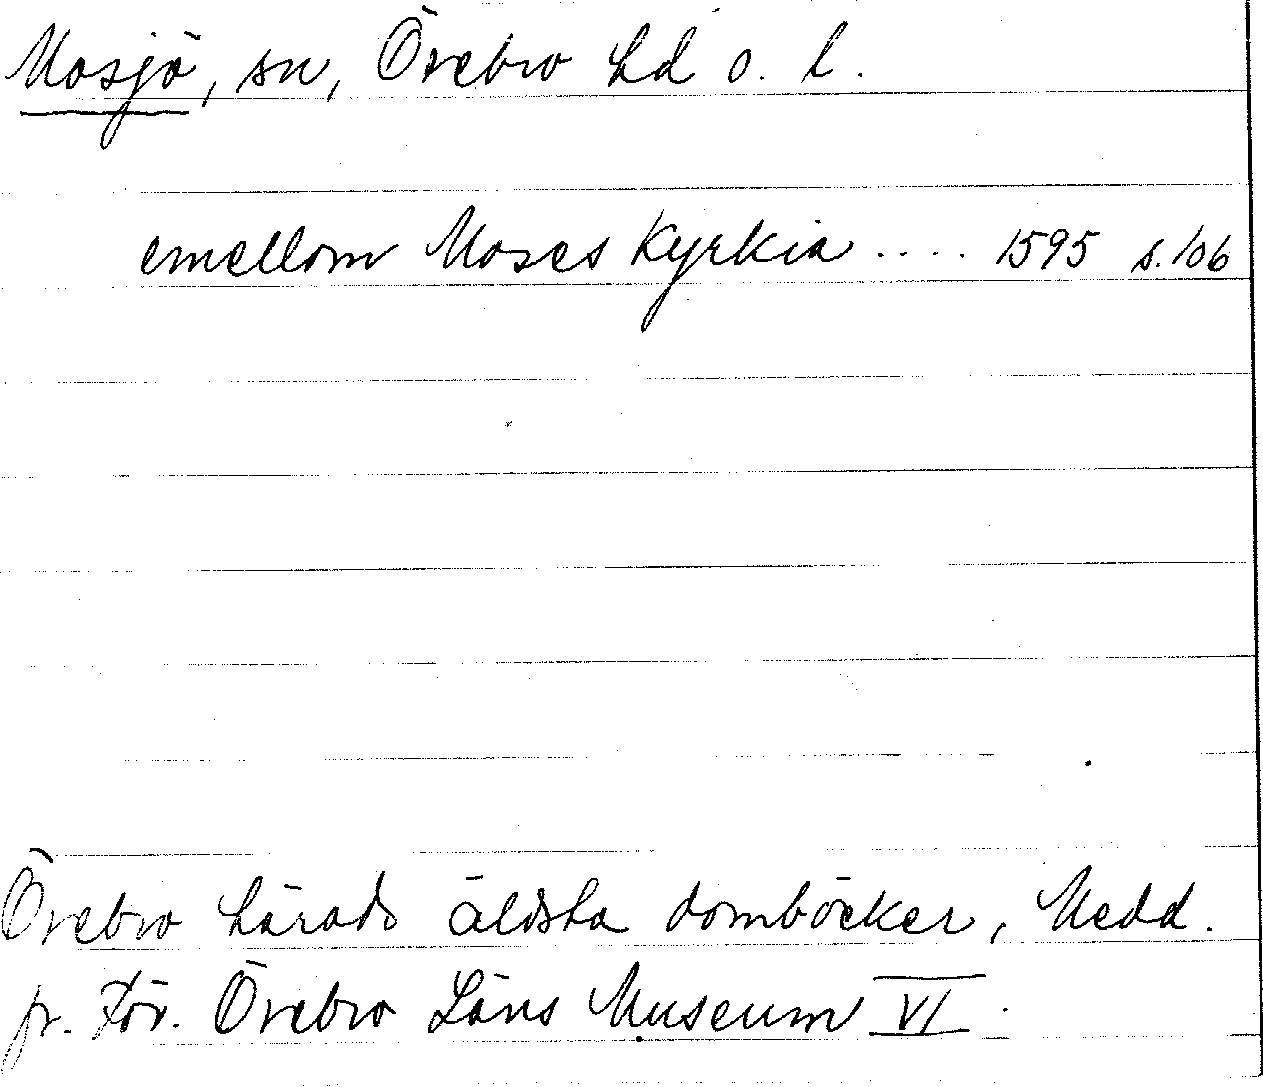 Mosjö, sn, Örebro hd o. l.
emellom Moses Kyrkia .... 1595 s. 106
Örebro härads äldsta domböcker, Medd.
fr. För. Örebro Läns Museum VI.